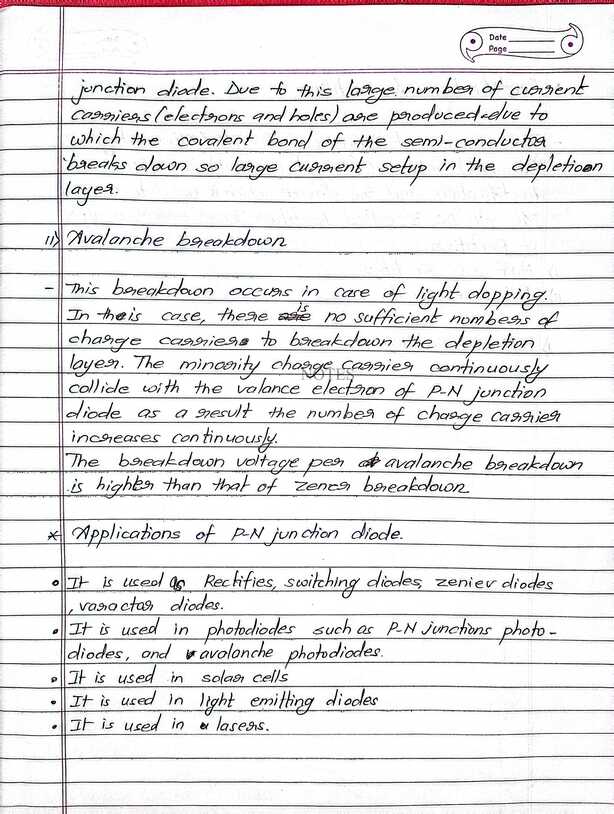 Date
Page
junction diode. Due to this large number of current
carriers (electrons and holes) are produced due to
which the covalent bond of the semi-conductor
breaks down so large current setup in the depletion
layer.
ii) Avalanche breakdown
- This breakdown occurs in case of light dopping.
In this case, there is no sufficient numbers of
charge carriers to breakdown the depletion
layer. The minority charge carrier continuously
NOTES
collide with the valance electron of P-N junction
diode as a result the number of charge carrier
increases continuously.
The breakdown voltage per avalanche breakdown
is higher than that of zener breakdown
* Applications of P-N junction diode.
• It is used as Rectifies, switching diodes, zeniev diodes
, varactar diodes.
• It is used in photodiodes such as P-N junctions photo-
diodes, and avalanche photodiodes.
• It is used in solar cells
• It is used in light emitting diodes
• It is used in lasers.